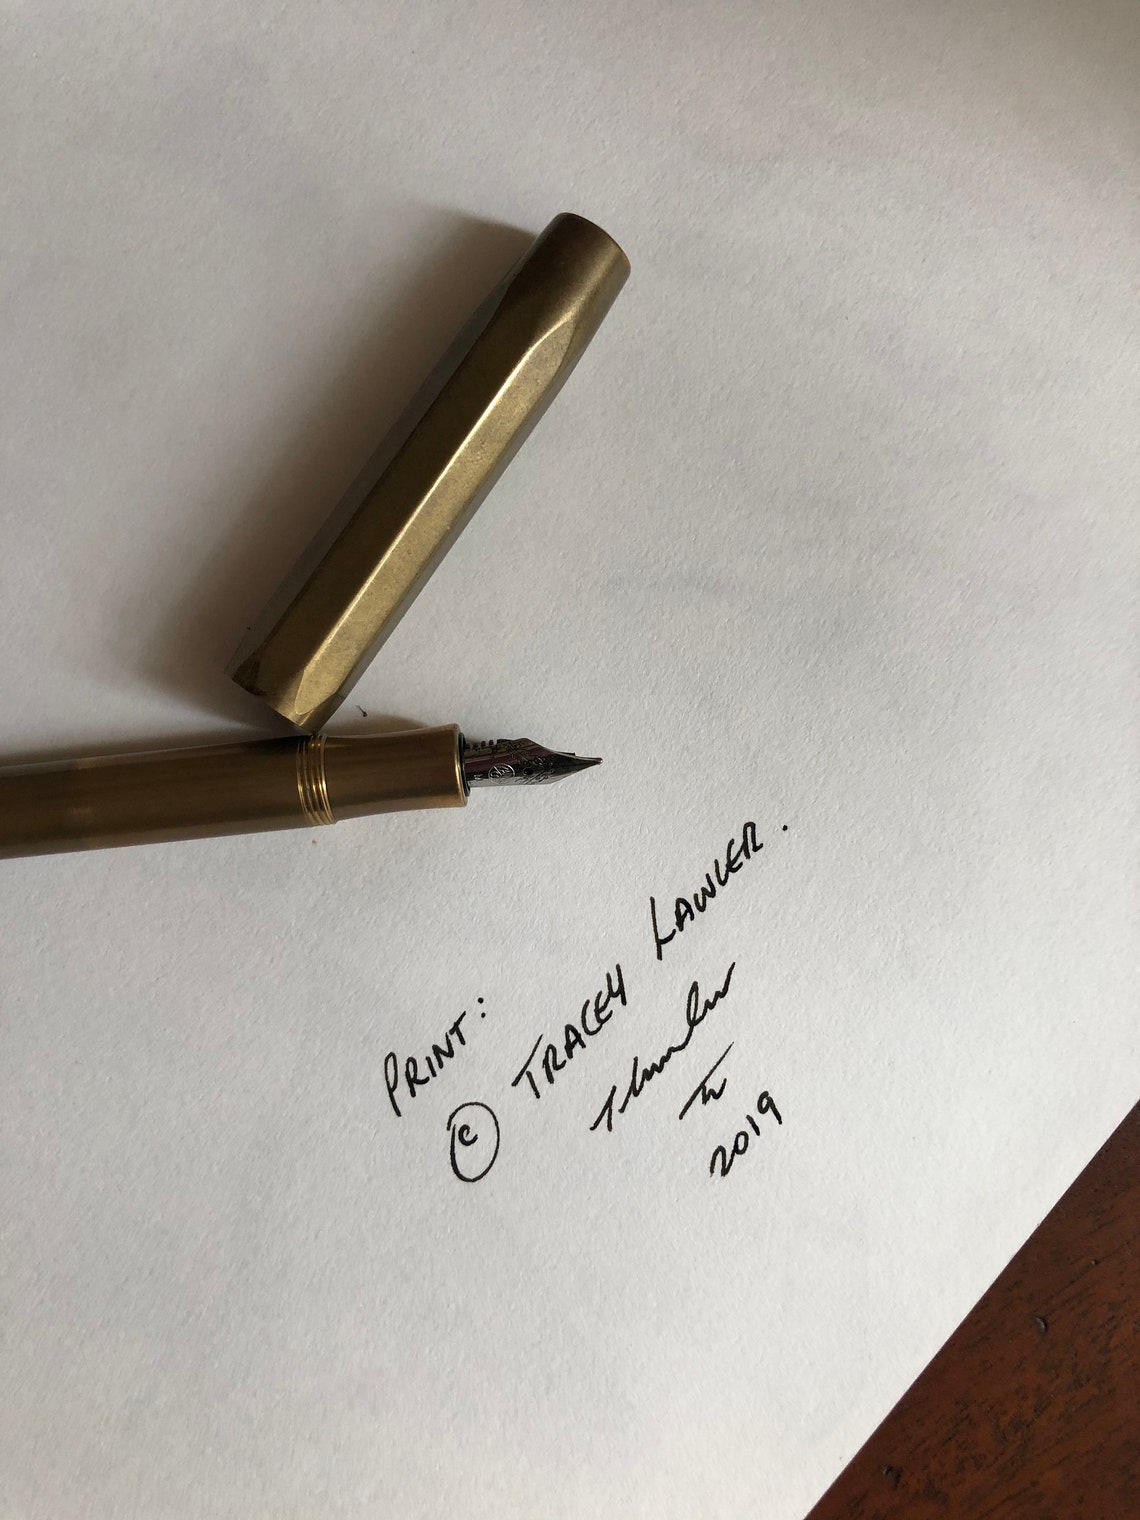 PRINT:
© TRACEY LAWLER.
2019